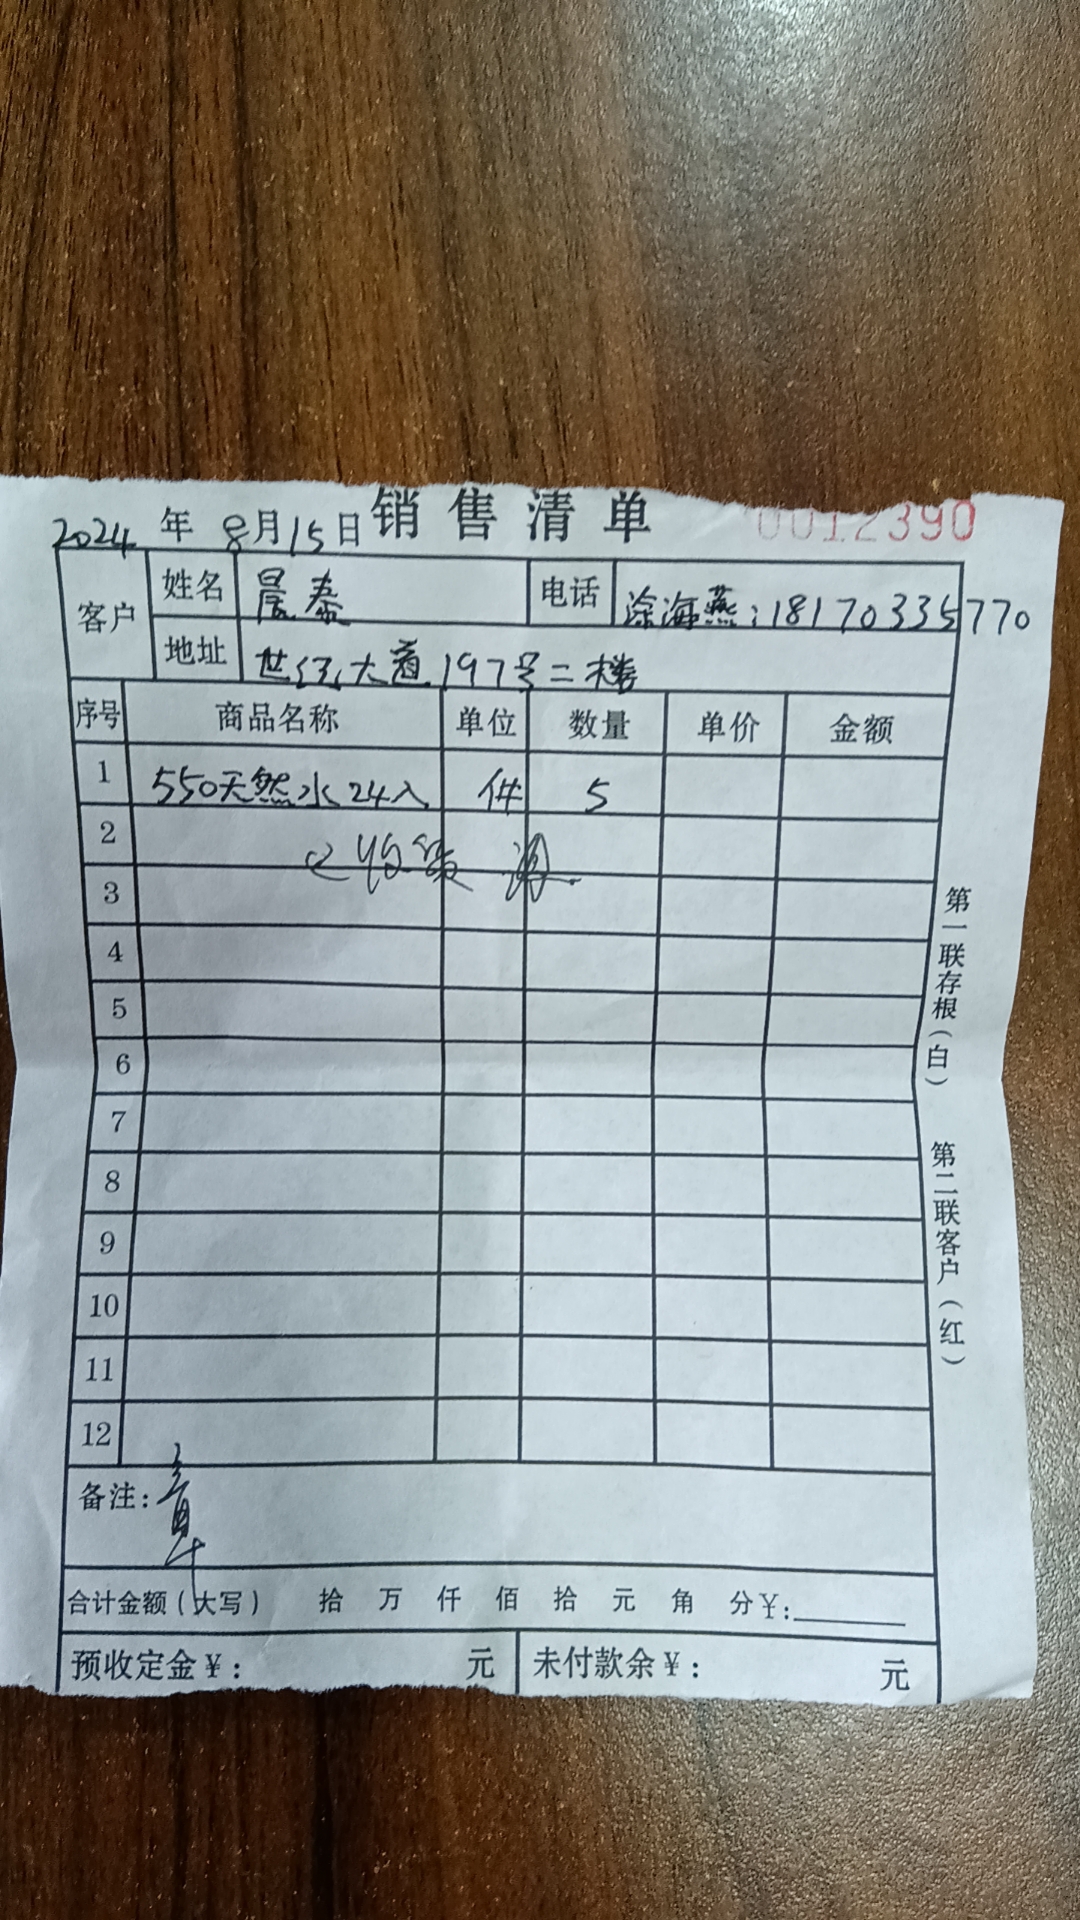 销售清单 0012390
2024年8月15日
客户 姓名 晨泰 电话 涂海燕:18170335770
地址 世纪大道197号二楼
序号 商品名称 单位 数量 单价 金额
1 550天然水24入 件 5
2 已收
3
4
5
6
7
8
9
10
11
12
备注:
合计金额(大写) 拾 万 仟 佰 拾 元 角 分¥:
预收定金¥: 元 未付款余¥: 元
第一联存根(白) 第二联客户(红)